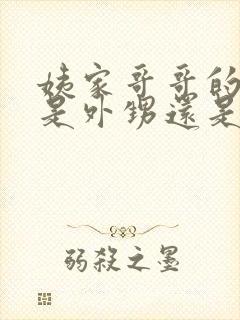 姨家哥哥的
是外甥還是
弱殺之墨